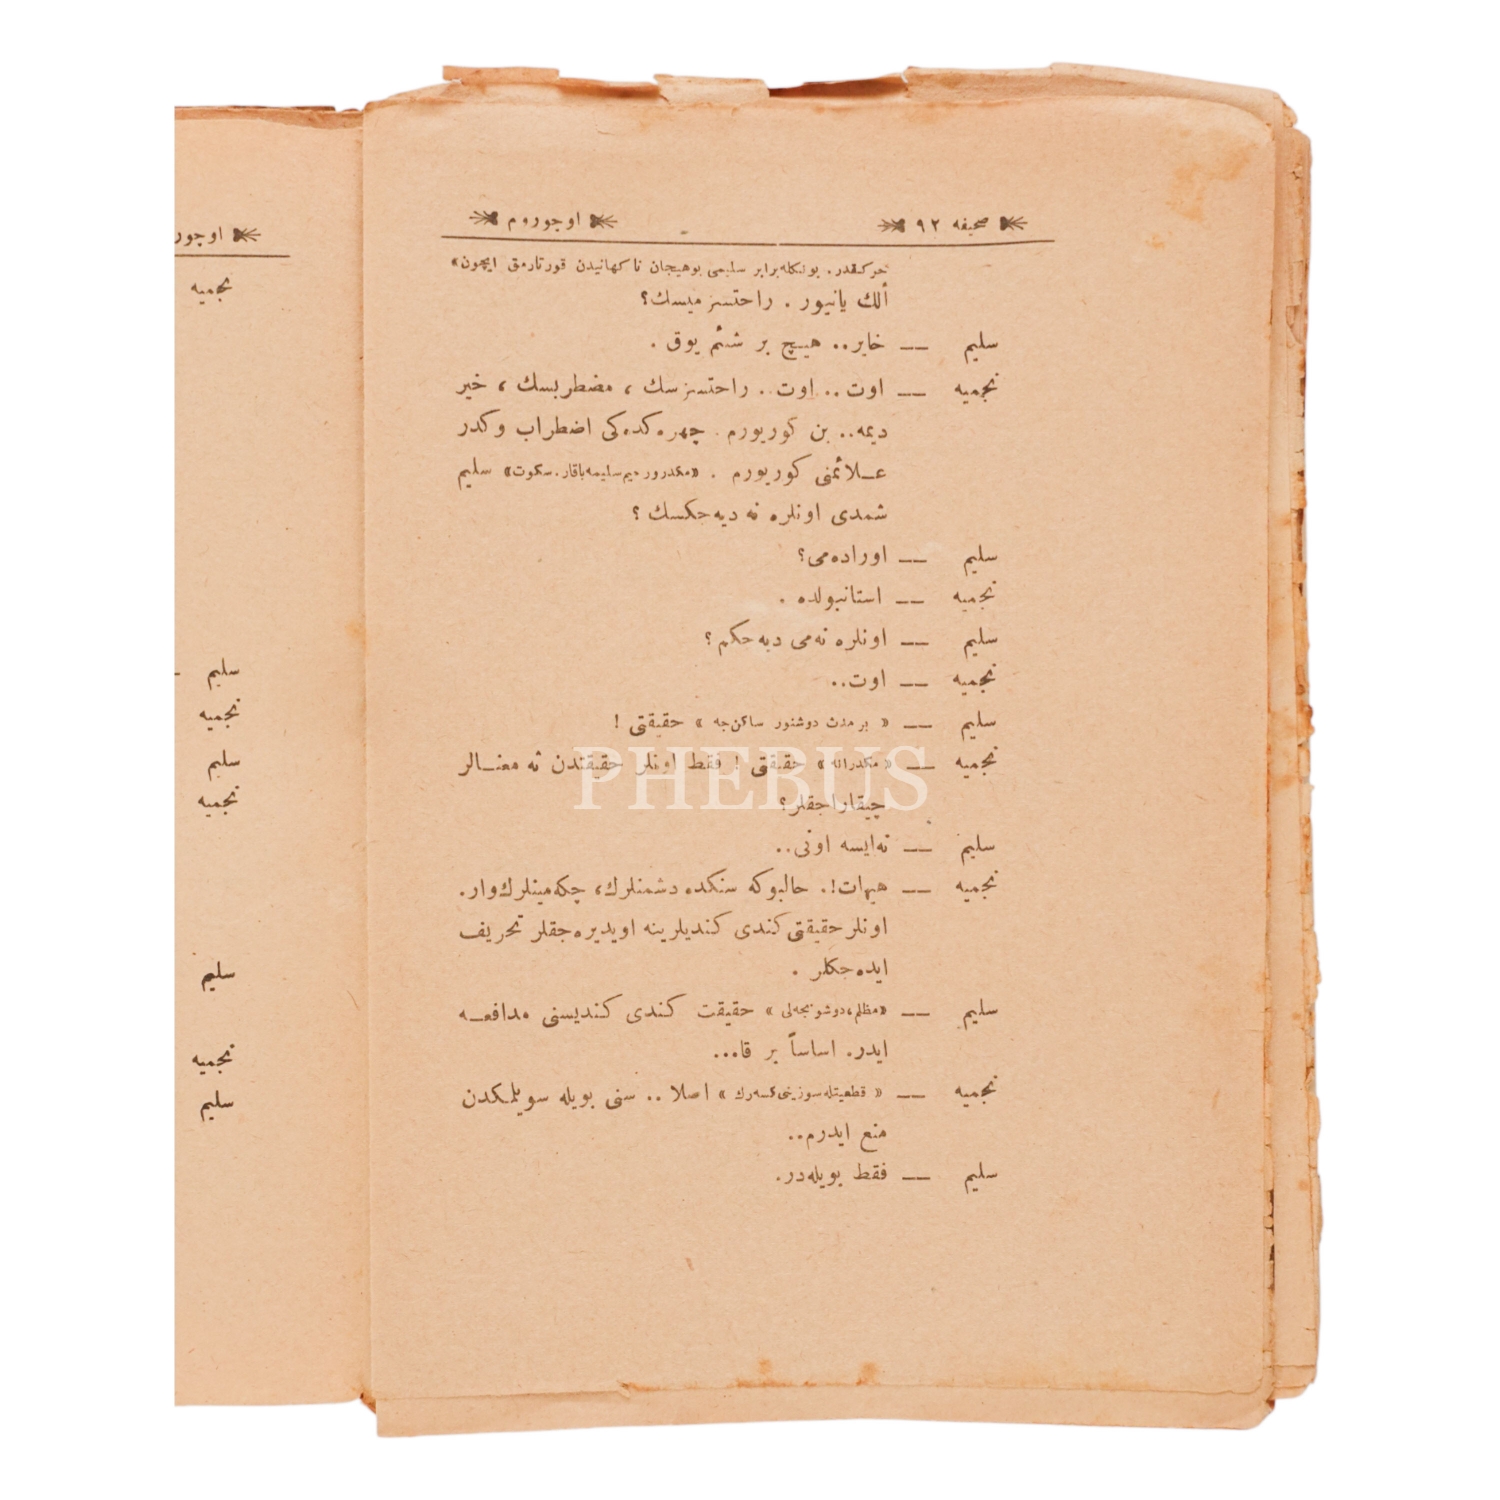 صحيفه ٩٢ اوچوروم
حركتدر. بونكله برابر سليمى بوهيجان ناكهانيدن قورتارمق ايچون»
ألك يانيور . راحتسز ميسك؟
سليم — خاير.. هيچ بر شئم يوق .
نجميه — اوت .. اوت .. راحتسزسك ، مضطربسك ، خير
ديمه.. بن كوريورم . چهره‌كده‌كى اضطراب وكدر
علائمنى كوريورم . «مكدرور سليمه باقار. سكوت» سليم
شمدى اونلره نه ديه‌جكسك ؟
سليم — اوراده‌مى؟
نجميه — استانبولده .
سليم — اونلره نه‌مى ديه‌جكم ؟
نجميه — اوت..
سليم — « بر مدت دوشنور ساكن‌جه » حقيقتى !
نجميه — « مكدرانه » حقيقتى ! فقط اونلر حقيقتدن نه معنالر
چيقاراجقلر؟
سليم — نه‌ايسه اونى..
نجميه — هيهات!. حالبوكه سنكده دشمنلرك، چكه‌مينلرك‌وار.
اونلر حقيقتى كندى كنديلرينه اويديره‌جقلر تحريف
ايده‌جكلر .
سليم — «مظلم، دوشونجه‌لى » حقيقت كندى كنديسنى مدافعه
ايدر. اساساً بر قا...
نجميه — « قطعيتله سوزينى كسه‌رك » اصلا .. سنى بويله سويلمكدن
منع ايدرم..
سليم — فقط بويله‌در.
اوچور
نجميه
سليم —
نجميه
سليم
نجميه
سليم
نجميه
سليم
PHEBUS